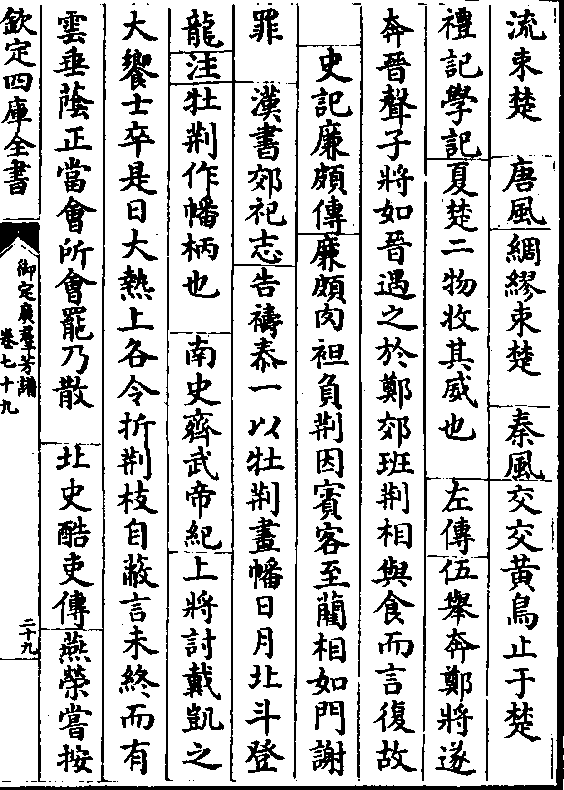 流束楚　唐風綢繆束楚　秦風交交黄鳥止于楚
禮記學記夏楚二物收其威也　左傳伍舉奔鄭將遂
奔晉聲子將如晉遇之於鄭郊班荆相與食而言復故
史記廉頗傳廉頗肉袒負荆因賓客至藺相如門謝
罪　漢書郊祀志告禱泰一以牡荆畫幡日月北斗登
龍注牡荆作幡柄也　南史齊武帝紀上將討戴凱之
大饗士卒是日大熱上各令折荆枝自蔽言未終而有
雲垂蔭正當會所會罷乃散　北史酷吏傳燕榮嘗按
欽定四庫全書
御定廣羣芳譜
卷七十九
二十九